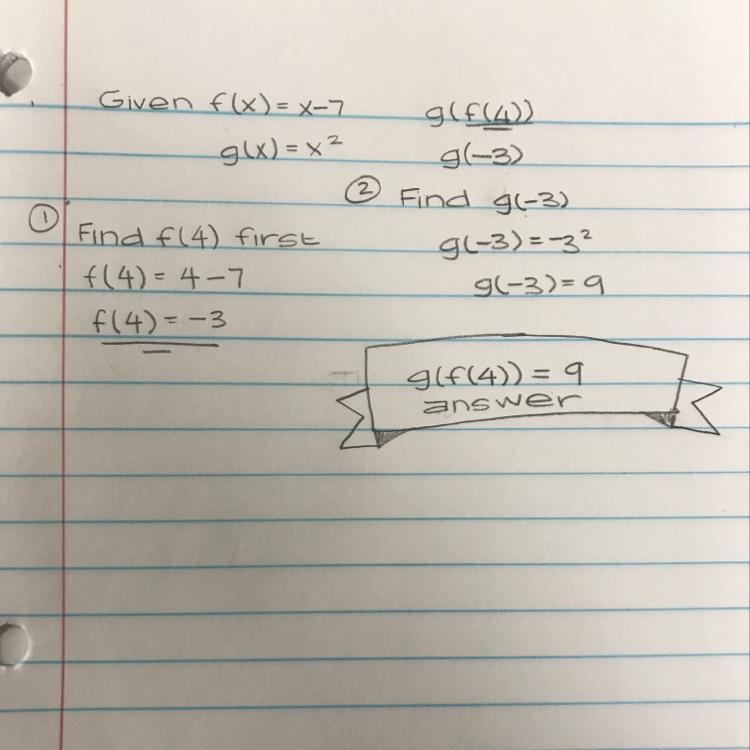 Given f(x) = x-7
g(x) = x²
① Find f(4) first
f(4) = 4-7
f(4) = -3
g(f(4))
g(-3)
② Find g(-3)
g(-3) = -3²
g(-3) = 9
g(f(4)) = 9
answer